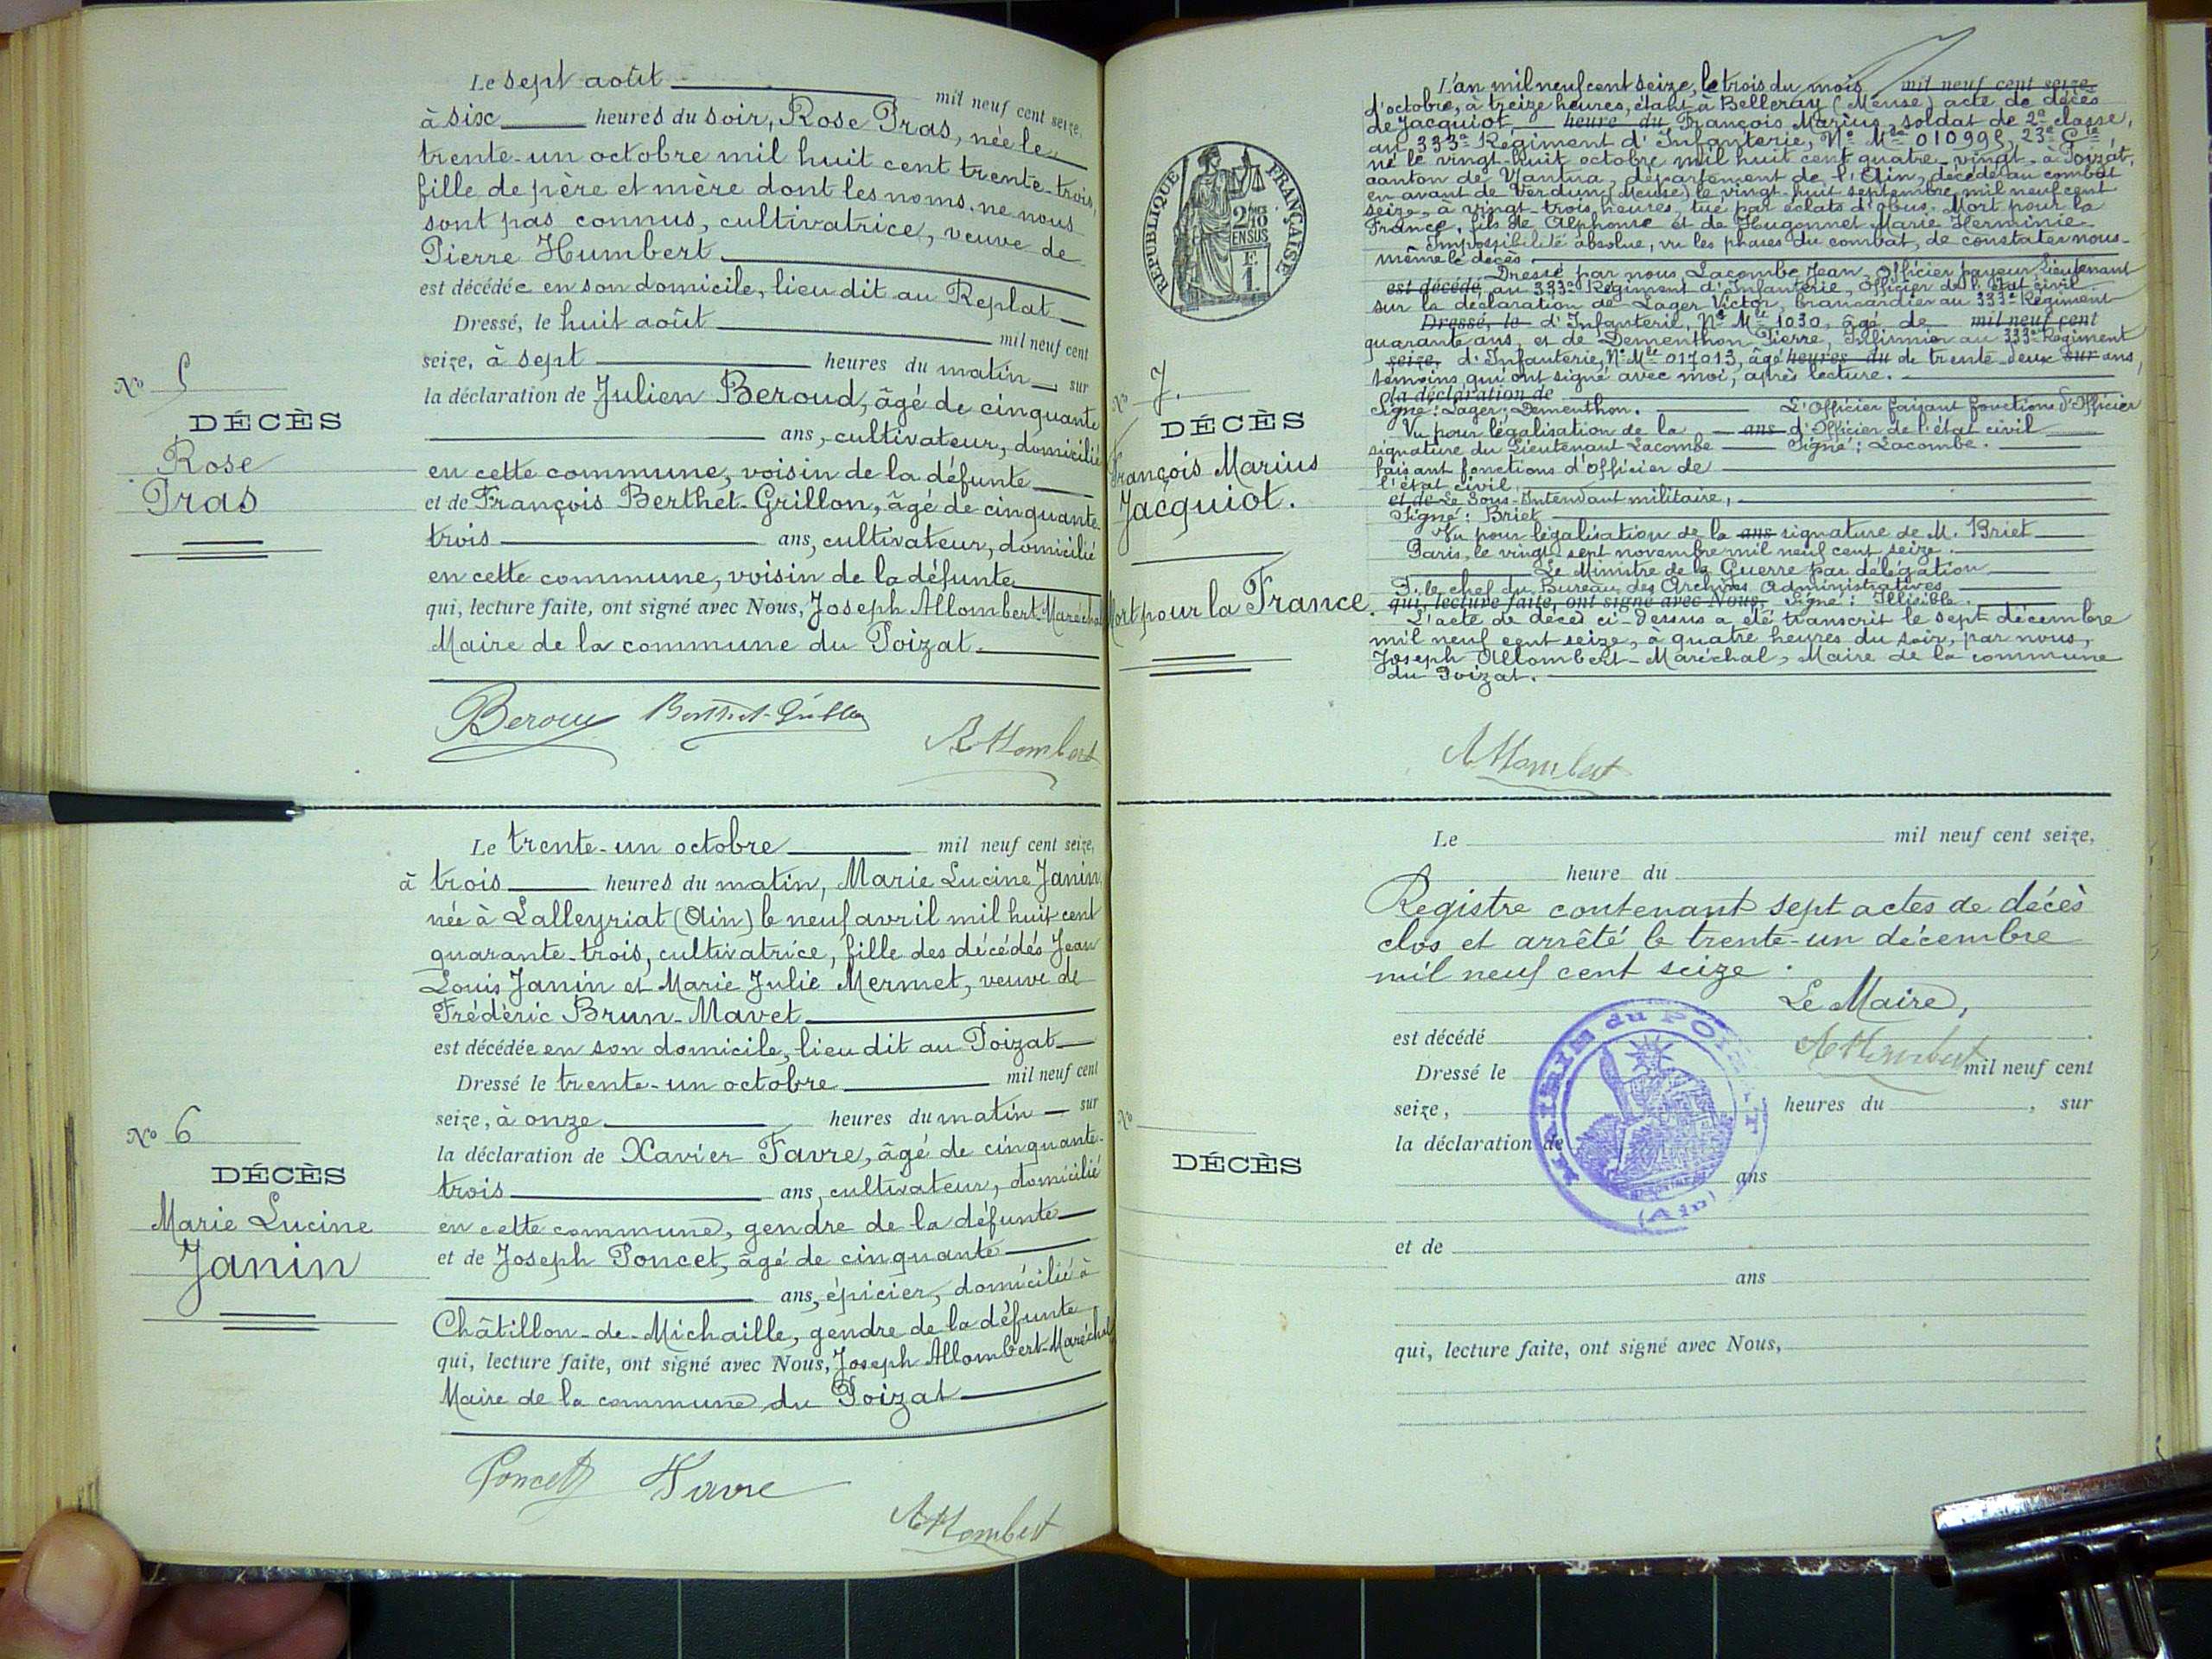 Le sept août mil neuf cent seize,
à six heures du soir, Rose Pras, née le
trente-un octobre mil huit cent trente-trois,
fille de père et mère dont les noms ne nous
sont pas connus, cultivatrice, veuve de
Pierre Humbert
est décédée en son domicile, lieu dit au Replat
Dressé, le huit août mil neuf cent
seize, à sept heures du matin, sur
la déclaration de Julien Beroud, âgé de cinquante
ans, cultivateur, domicilié
en cette commune, voisin de la défunte
et de François Berthet-Grillon, âgé de cinquante-
trois ans, cultivateur, domicilié
en cette commune, voisin de la défunte
qui, lecture faite, ont signé avec Nous, Joseph Allombert-Maréchal
Maire de la commune du Poizat.
No 5
DÉCÈS
Rose
Pras
Berthet-Grillon
Allombert
Le trente-un octobre mil neuf cent seize,
à trois heures du matin, Marie Lucine Janin,
née à Lalleyriat (Ain) le neuf avril mil huit cent
quarante-trois, cultivatrice, fille des décédés Jean
Louis Janin et Marie Julie Mermet, veuve de
Frédéric Brun-Mavet
est décédée en son domicile, lieu dit au Poizat
Dressé le trente-un octobre mil neuf cent
seize, à onze heures du matin sur
la déclaration de Xavier Favre, âgé de cinquante-
trois ans, cultivateur, domicilié
en cette commune, gendre de la défunte
et de Joseph Poncet, âgé de cinquante
ans, épicier, domicilié à
Châtillon-de-Michaille, gendre de la défunte
qui, lecture faite, ont signé avec Nous, Joseph Allombert-Maréchal
Maire de la commune du Poizat
No 6
DÉCÈS
Marie Lucine
Janin
Poncet Favre
Allombert
RÉPUBLIQUE FRANÇAISE
2/10 EN SUS
F.
1.
No 7.
DÉCÈS
François Marius
Jacquiot.
Mort pour la France.
L'an mil neuf cent seize, le trois du mois mil neuf cent seize,
d'octobre, à treize heures, étant à Belleray (Meuse) acte de décès
de Jacquiot, heure du François Marius, soldat de 2e classe,
au 333e Régiment d'Infanterie, No Mle 010995, 23e Cie,
né le vingt-huit octobre mil huit cent quatre-vingt, à Poizat,
canton de Nantua, département de l'Ain, décédé au combat
en avant de Verdun (Meuse) le vingt-huit septembre mil neuf cent
seize, à vingt-trois heures, tué par éclats d'obus. Mort pour la
France, fils de Alphonse et de Hugonnet Marie Herminie
Impossibilité absolue, vu les phases du combat, de constater nous-
même le décès.
Dressé par nous, Lacombe Jean, Officier payeur, Lieutenant
est décédé, au 333e Régiment d'Infanterie, Officier de l'état civil.
sur la déclaration de Lager Victor, brancardier au 333e Régiment
Dressé, le d'Infanterie, No Mle 1030, âgé de mil neuf cent
quarante ans, et de Dementhon Pierre, Infirmier au 333e Régiment
seize, d'Infanterie, No Mle 017013, âgé heures du de trente-deux sur ans,
témoins qui ont signé avec moi, après lecture.
la déclaration de
Signé: Lager; Dementhon. L'Officier faisant fonctions d'Officier
Vu pour légalisation de la ans d'Officier de l'état civil
signature du Lieutenant Lacombe Signé: Lacombe.
faisant fonctions d'Officier de
l'état civil,
et de Le Sous-Intendant militaire,
Signé: Briet
Vu pour légalisation de la ans signature de M. Briet
Paris, le vingt-sept novembre mil neuf cent seize.
Le Ministre de la Guerre par délégation
P. le chef du Bureau des Archives Administratives
qui, lecture faite, ont signé avec Nous, Signé: Illisible.
L'acte de décès ci-dessus a été transcrit le sept décembre
mil neuf cent seize, à quatre heures du soir, par nous,
Joseph Allombert-Maréchal, Maire de la commune
du Poizat.
Allombert
Le mil neuf cent seize,
heure du
Registre contenant sept actes de décès
clos et arrêté le trente-un décembre
mil neuf cent seize.
Le Maire,
est décédé
Allombert
Dressé le mil neuf cent
seize, heures du , sur
la déclaration de
ans
et de
ans
qui, lecture faite, ont signé avec Nous,
No
DÉCÈS
MAIRIE du POIZAT
(Ain)